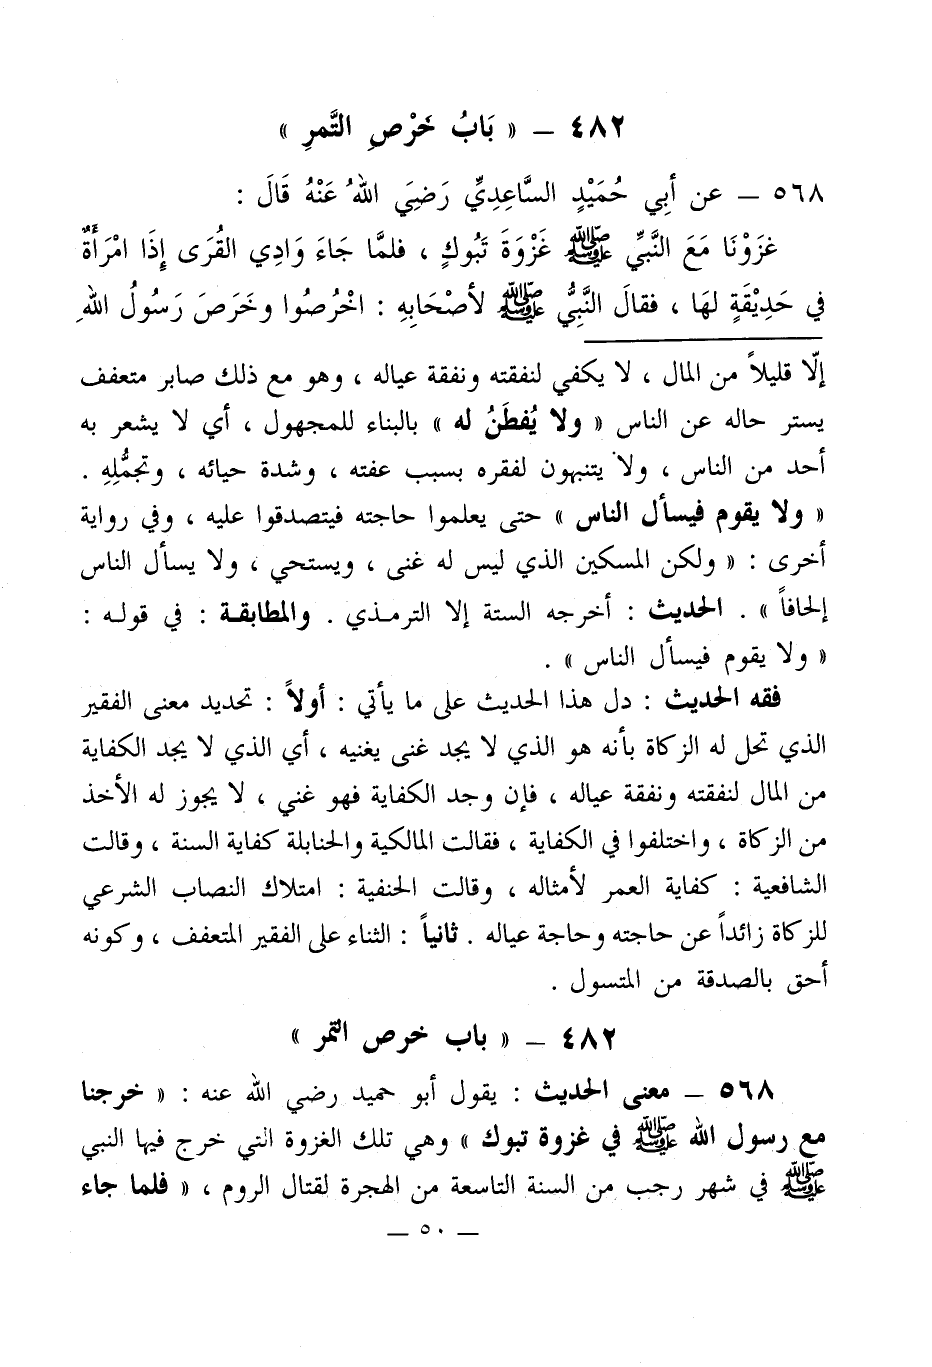 ٤٨٢ – « بَابُ خَرْصِ التَّمرِ »
٥٦٨ – عن أبِي حُمَيْدٍ السَّاعِدِيِّ رَضِيَ اللهُ عَنْهُ قَالَ :
غَزَوْنَا مَعَ النَّبِيِّ ﷺ غَزْوَةَ تَبُوكٍ ، فلمَّا جَاءَ وَادِي القُرَى إِذَا امْرَأَةٌ
في حَدِيْقَةٍ لهَا ، فقالَ النَّبِيُّ ﷺ لأصْحَابِهِ : اخْرُصُوا وخَرَصَ رَسُولُ اللهِ
إلّا قليلاً من المال ، لا يكفي لنفقته ونفقة عياله ، وهو مع ذلك صابر متعفف
يستر حاله عن الناس « ولا يُفطَنُ له » بالبناء للمجهول ، أي لا يشعر به
أحد من الناس ، ولا يتنبهون لفقره بسبب عفته ، وشدة حيائه ، وتجمُّلِهِ .
« ولا يقوم فيسأل الناس » حتى يعلموا حاجته فيتصدقوا عليه ، وفي رواية
أخرى : « ولكن المسكين الذي ليس له غنى ، ويستحي ، ولا يسأل الناس
إلحافاً » . الحديث : أخرجه الستة إلا الترمذي . والمطابقة : في قوله :
« ولا يقوم فيسأل الناس » .
فقه الحديث : دل هذا الحديث على ما يأتي : أولاً : تحديد معنى الفقير
الذي تحل له الزكاة بأنه هو الذي لا يجد غنى يغنيه ، أي الذي لا يجد الكفاية
من المال لنفقته ونفقة عياله ، فإن وجد الكفاية فهو غني ، لا يجوز له الأخذ
من الزكاة ، واختلفوا في الكفاية ، فقالت المالكية والحنابلة كفاية السنة ، وقالت
الشافعية : كفاية العمر لأمثاله ، وقالت الحنفية : امتلاك النصاب الشرعي
للزكاة زائداً عن حاجته وحاجة عياله . ثانياً : الثناء على الفقير المتعفف ، وكونه
أحق بالصدقة من المتسول .
٤٨٢ – « باب خرص التمر »
٥٦٨ – معنى الحديث : يقول أبو حميد رضي الله عنه : « خرجنا
مع رسول الله ﷺ في غزوة تبوك » وهي تلك الغزوة التي خرج فيها النبي
ﷺ في شهر رجب من السنة التاسعة من الهجرة لقتال الروم ، « فلما جاء
– ٥٠ –